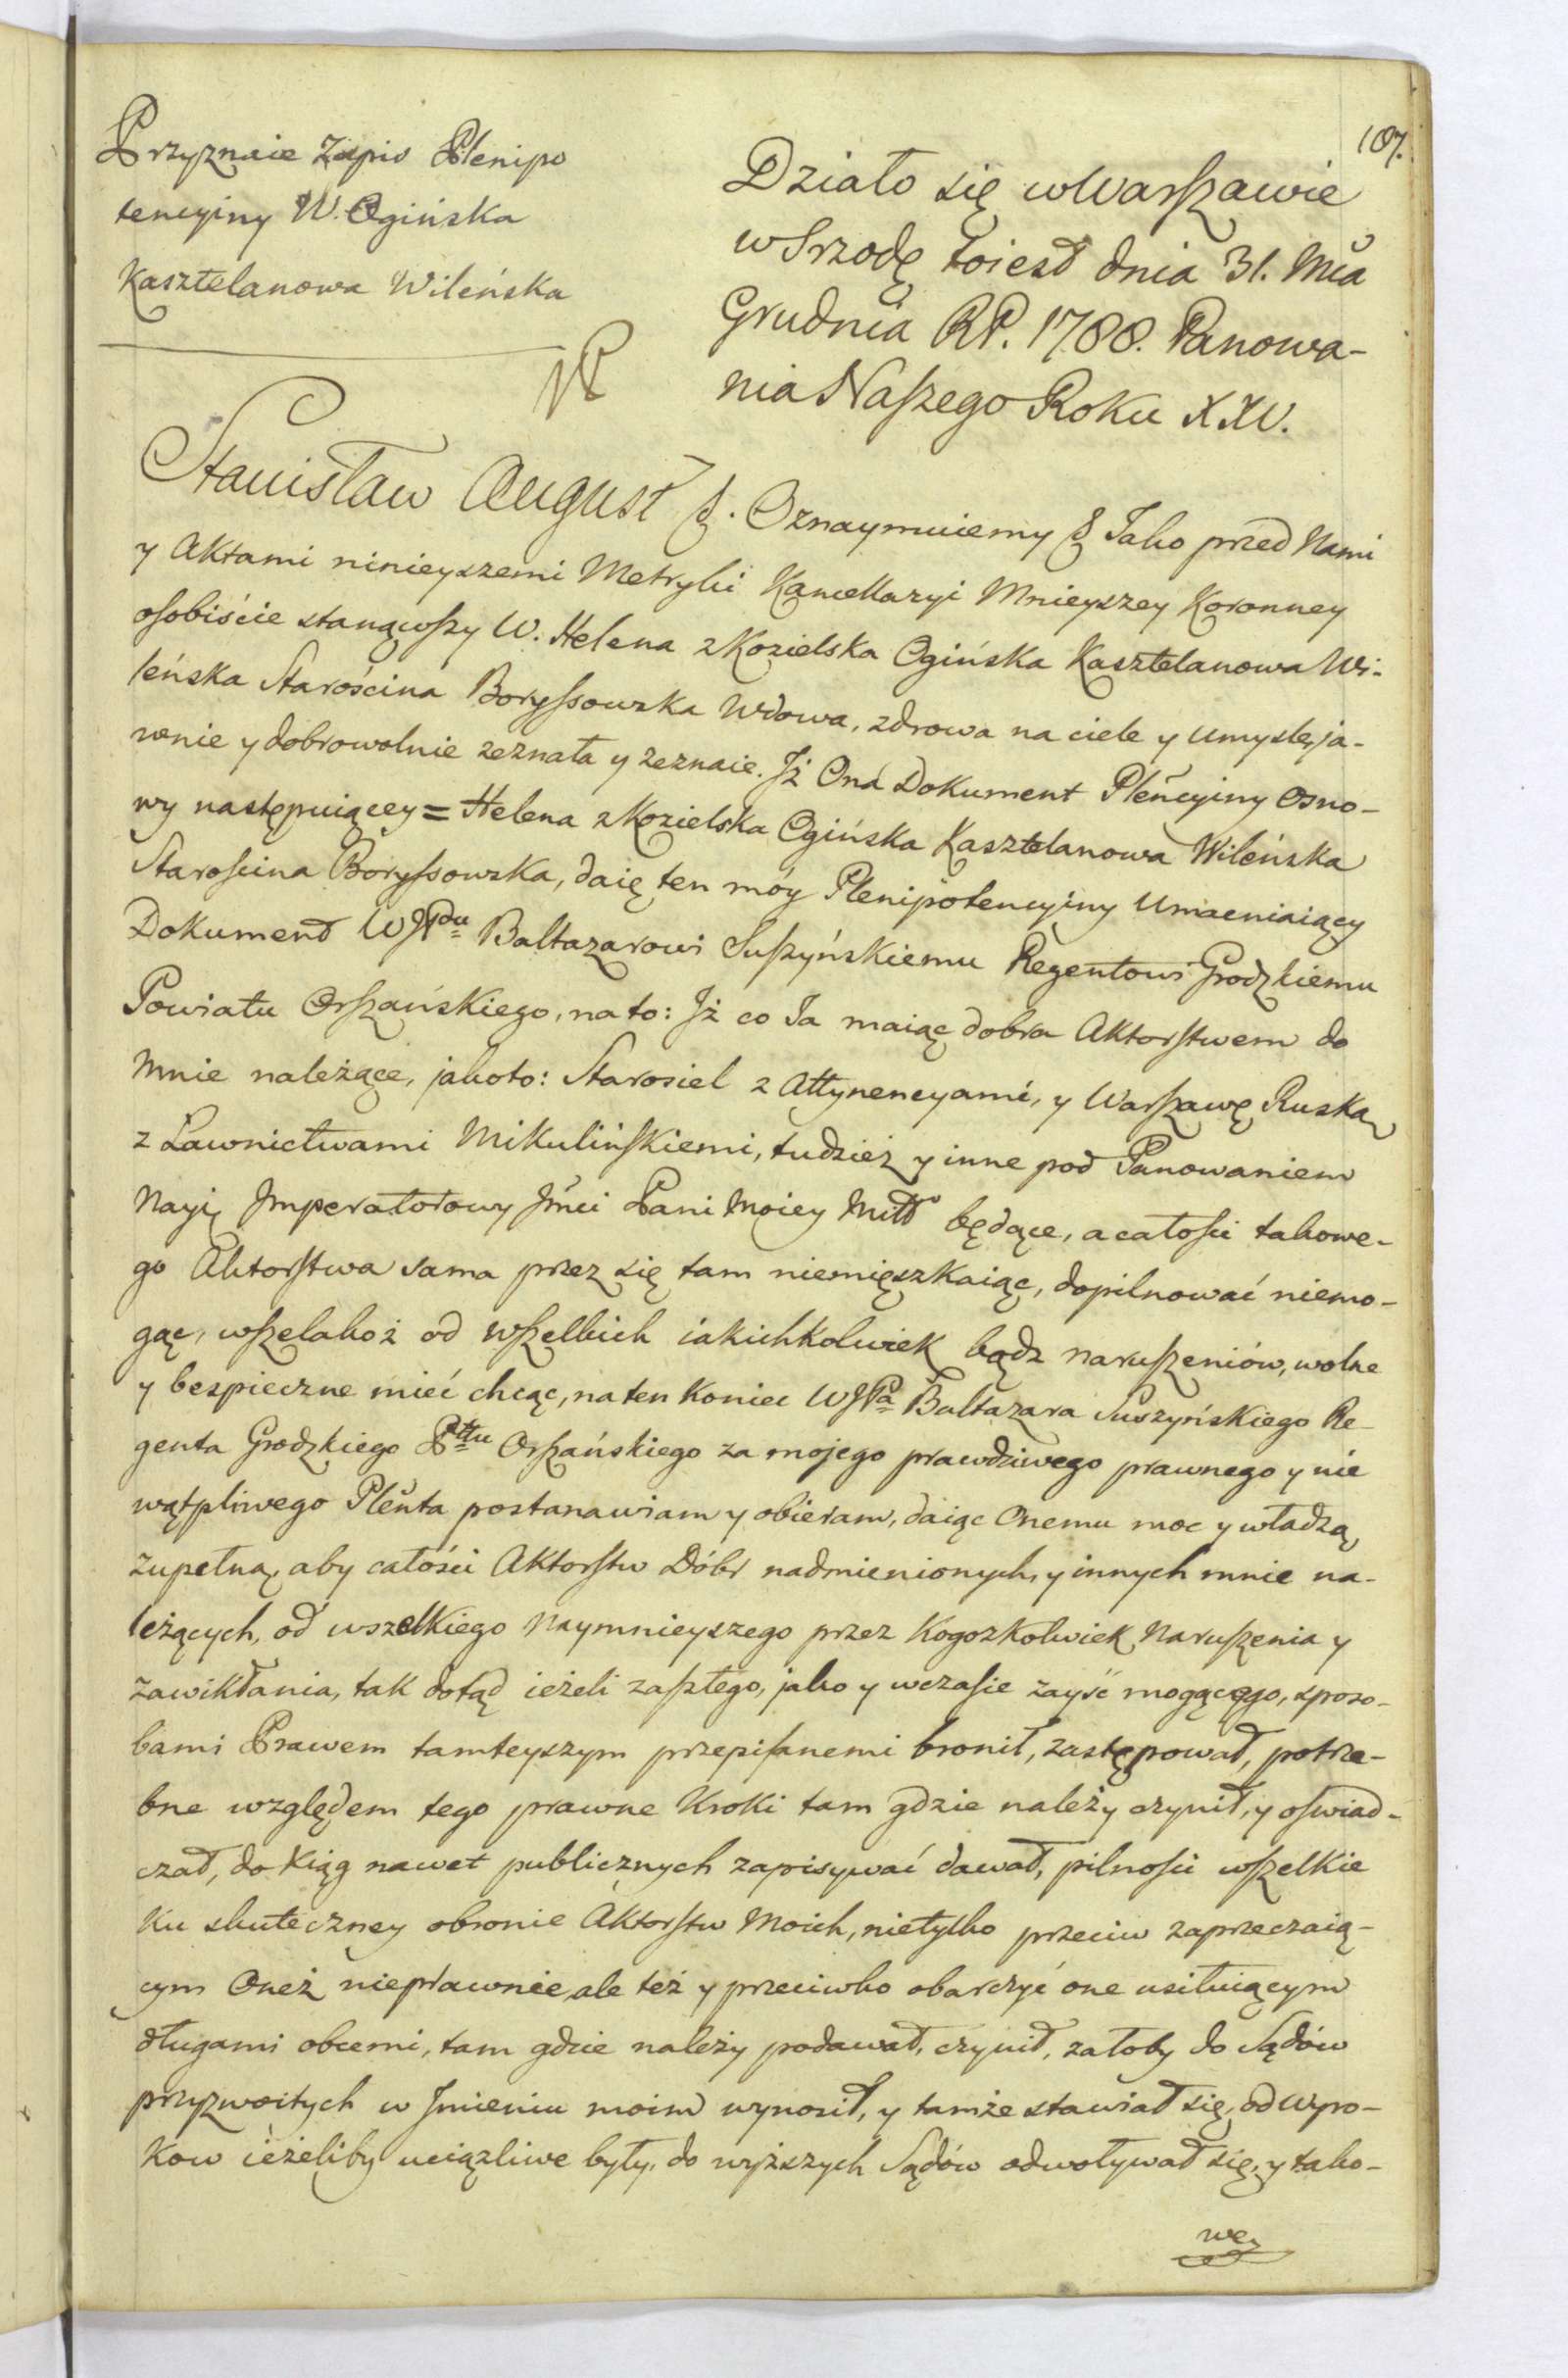 107.
Przyznaie Zapis Plenipo
tencyiny W. Ogińska
Kasztelanowa Wileńska
Działo się w Warszawie
w Srzodę toiest dnia 31. Mca
Grudnia RP. 1788. Panowa-
nia Naszego Roku XXV.
Stanisław August &. Oznaymuiemy & Jako przed Nami
y Aktami ninieyszemi Metryki Kancellaryi Mnieyszey Koronney
osobiście stanąwszy W. Helena z Kozielska Ogińska Kasztelanowa Wi-
leńska Starościna Boryssowska Wdowa, zdrowa na ciele y umyśle, ja-
wnie y dobrowolnie zeznała y zeznaie. Jż Ona Dokument Pleńcyiny Osno-
wy następuiącey = Helena z Kozielska Ogińska Kasztelanowa Wileńska
Starościna Boryssowska, daię ten móy Plenipotencyiny Umacniaiący
Dokument WJPdu Baltazarowi Suszyńskiemu Regentowi Grodzkiemu
Powiatu Orszańskiego, na to: Jż co Ja maiąc dobra Aktorstwem do
Mnie należące, jakoto: Starosiel z Attynencyami, y Warszawę Ruską
z Ławnictwami Mikulińskiemi, tudzież y inne pod Panowaniem
Nayię Jmperatorowy Jmci Pani Moiey Miłł będące, a całości takowe-
go Aktorstwa sama przez się tam niemięszkaiąc, dopilnować niemo-
gąc, wszelakoż od wszelkich iakichkolwiek bądz naruszeniów, wolne
y bespieczne mieć chcąc, na ten Koniec WJPa Baltazara Suszyńskiego Re-
genta Grodzkiego Pttu Orszańskiego za mojego prawdziwego prawnego y nie
wątpliwego Pleńta postanawiam y obieram, daiąc Onemu moc y władzą
zupełną, aby całości Aktorstw Dóbr nadmienionych, y innych mnie na-
leżących, od wszelkiego Naymnieyszego przez Kogozkolwiek Naruszenia y
zawikłania, tak dotąd ieżeli zaszłego, jako y wczasie zayść mogącego, sposo-
bami Prawem tamteyszym przepisanemi bronił, zastępował, potrze-
bne względem tego prawne Kroki tam gdzie należy czynił, y oświad-
czał, do Xiąg nawet publicznych zapisywać dawał, pilności wszelkie
Ku skuteczney obronie Aktorstw Moich, nietylko przeciw zaprzeczaią-
cym Oneż nieprawnie, ale też y przeciwko obarczyć one usiłuiącym
długami obcemi, tam gdzie należy podawał, czynił, załoby do Sądów
przyzwoitych w Jmieniu moim wynosił, y tamże stawiał się, od wyro-
Kow ieżeliby uciązliwe były, do wyższych Sądów odwoływał się, y tako-
we,